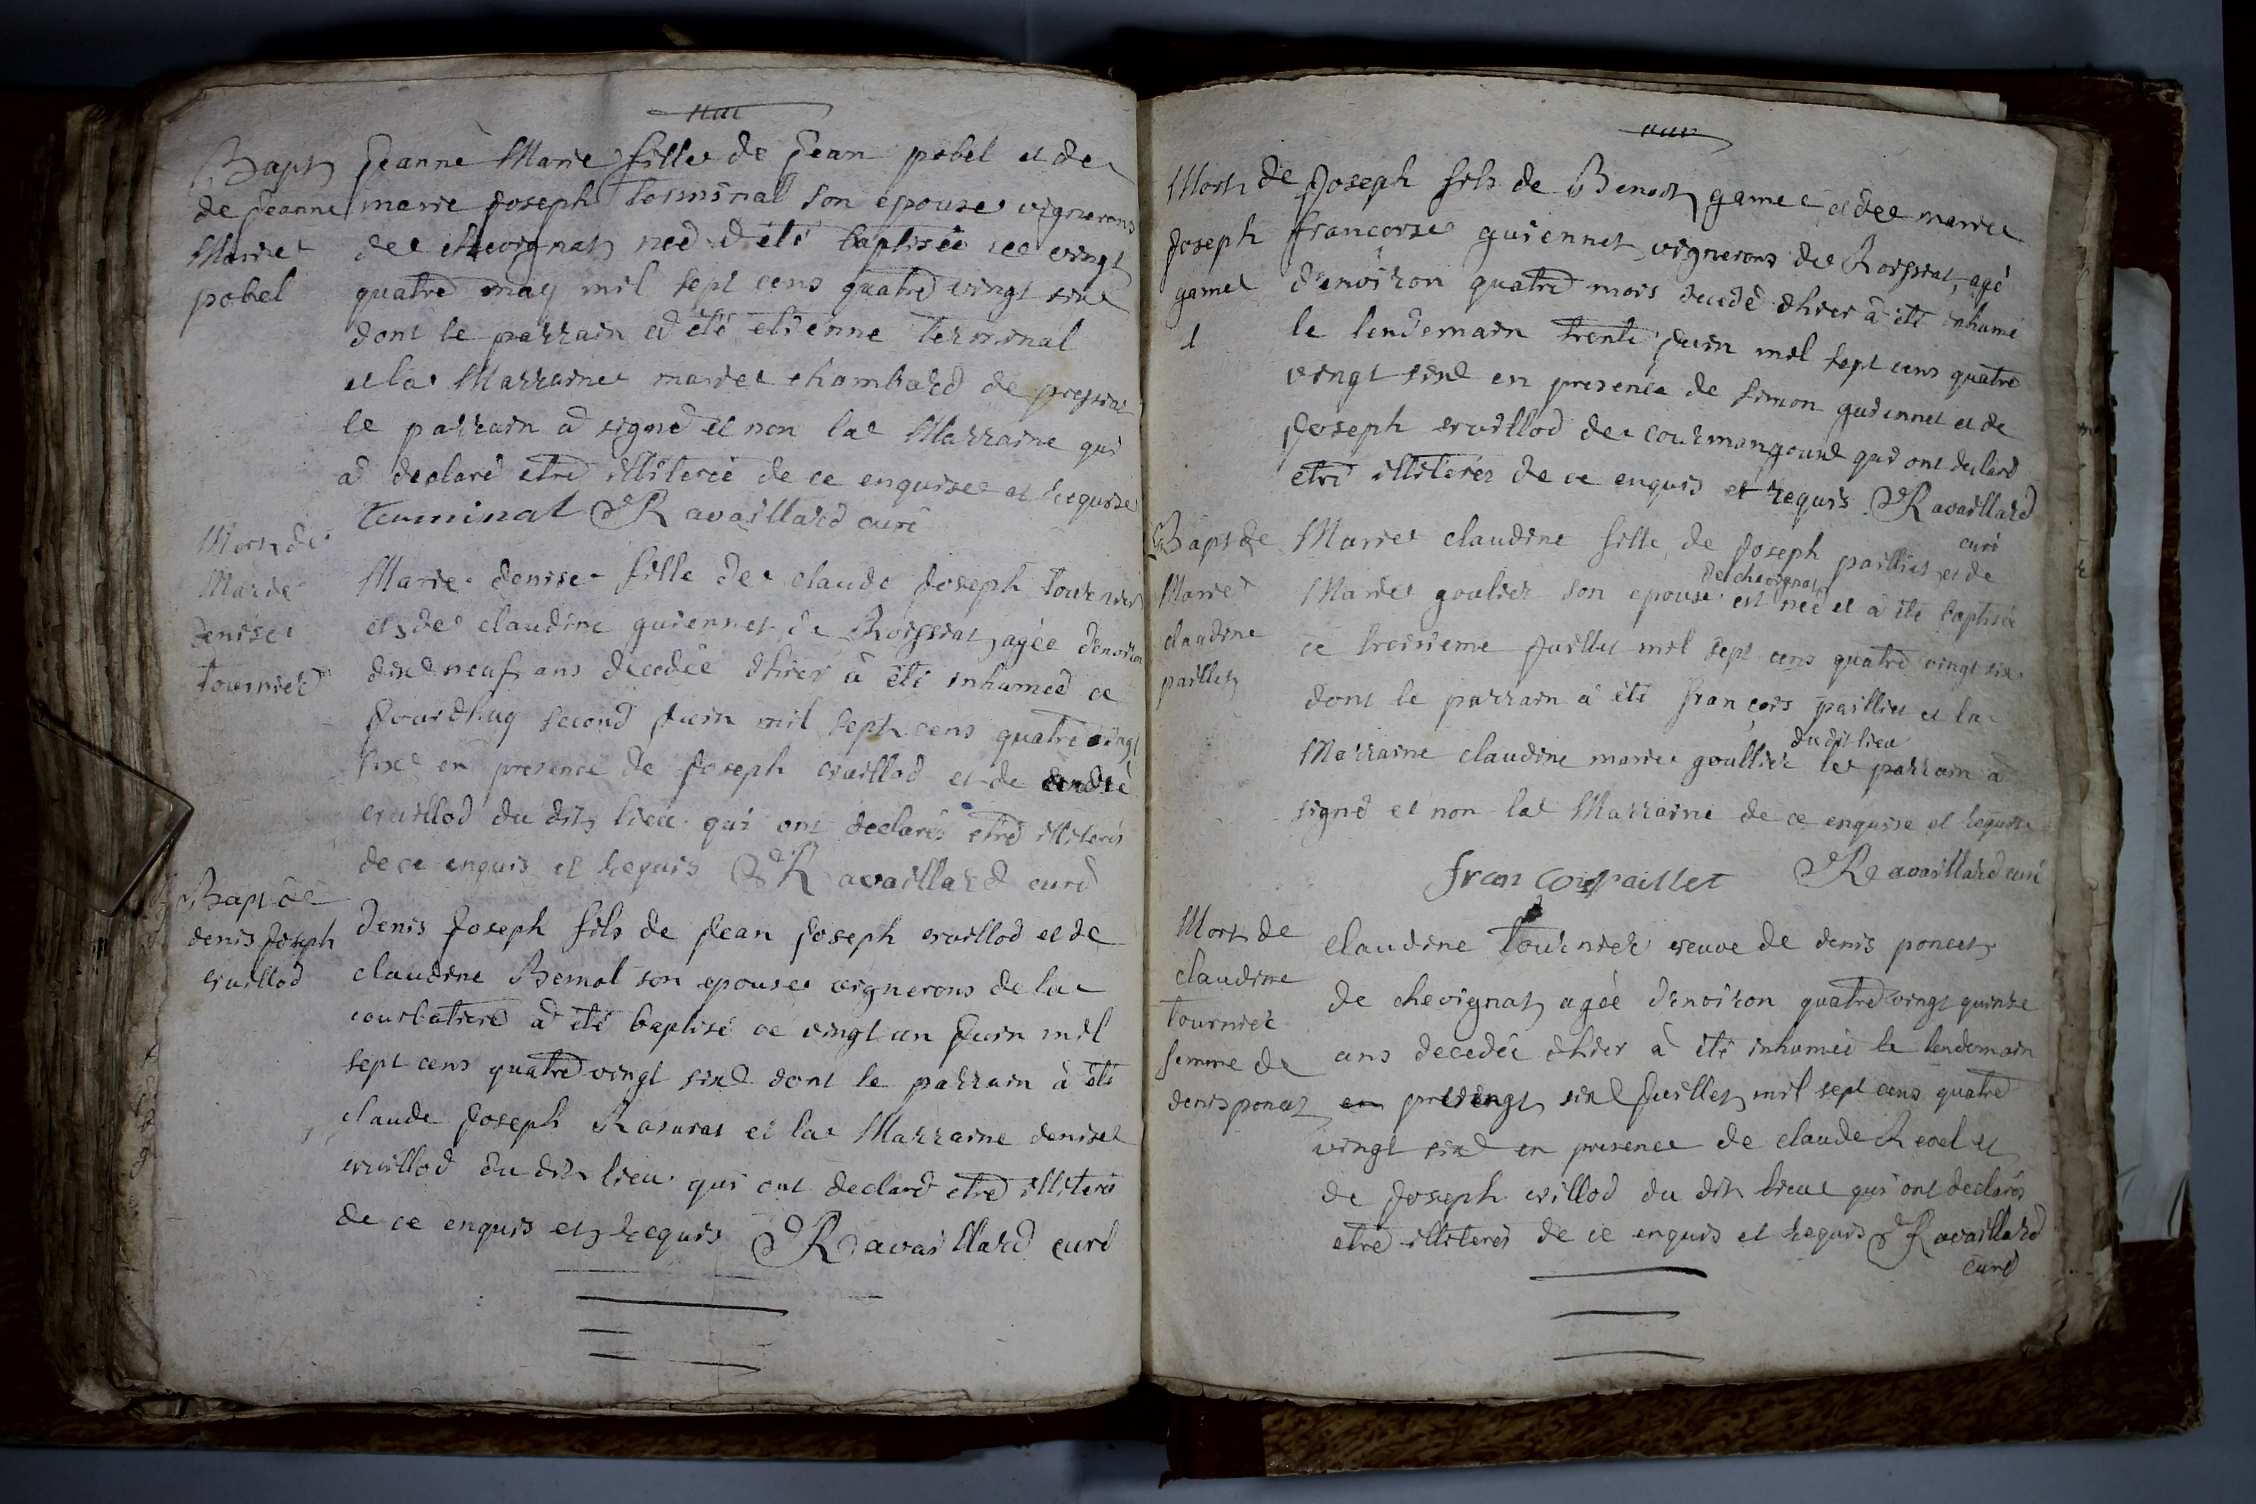 Bapt
de jeanne
Marie
pobel
jeanne Marie fille de jean pobel et de
marie joseph terminal son epouse vignerons
de chevignat, née et été baptisée ce vingt
quatre may mil sept cens quatre vingt six
dont le parrain a été etienne terminal
et la Marraine marie chambard de pressiat
le parrain a signé et non la Marraine qui
a declaré etre illiterée de ce enquise et requise
terminal Ravaillard curé
Mort de
Marie
denise
tournier
Marie denise fille de claude joseph tournier
et de claudine guiennet de Roissiat, agée denviron
dix neuf ans decedée d'hier à été inhumée ce
jourdhuy second juin mil sept cens quatre vingt
six en presence de joseph cruillod et de
cruillod du dit lieu qui ont declarés etre illiterés
de ce enquis et requis Ravaillard curé
Bapt de
denis joseph
cruillod
denis joseph fils de jean joseph cruillod et de
claudine Bernol son epouse vignerons de la
courbatiere a été baptisé ce vingt un juin mil
sept cens quatre vingt six dont le parrain à été
claude joseph Rasurat et la Marraine denise
cruillod du dit lieu qui ont declaré etre illiterés
de ce enquis et requis Ravaillard curé
Mort de
joseph
gamet
1
joseph fils de Benoit gamet et de marie
francoise guiennet vignerons de Roissiat, agé
d'environ quatre mois decedé d'hier à été inhumé
le lendemain trente juin mil sept cens quatre
vingt six en presence de simon guiennet et de
joseph cruillod de courmangoux qui ont declaré
etre illiterés de ce enquis et requis Ravaillard
curé
Bapt de
Marie
claudine
paillet
Marie claudine fille de joseph pailliet et de
de chevignat
Marie goulier son epouse est née et à été baptisée
ce troisieme juillet mil sept cens quatre vingt six
dont le parrain à été françois pailliet et la
du dit lieu
Marraine claudine marie goullier le parrain a
signé et non la Marraine de ce enquise et requise
francois paillet Ravaillard curé
Mort de
claudine
tournier
femme de
denis poncet
claudine tournier veuve de denis poncet
de chevignat agée d'environ quatre vingt quinze
ans decedée d'hier à été inhumée le lendemain
vingt six juillet mil sept cens quatre
vingt six en presence de claude Revel et
de joseph crillod du dit lieu qui ont declarés
etre illiterés de ce enquis et requis Ravaillard
curé